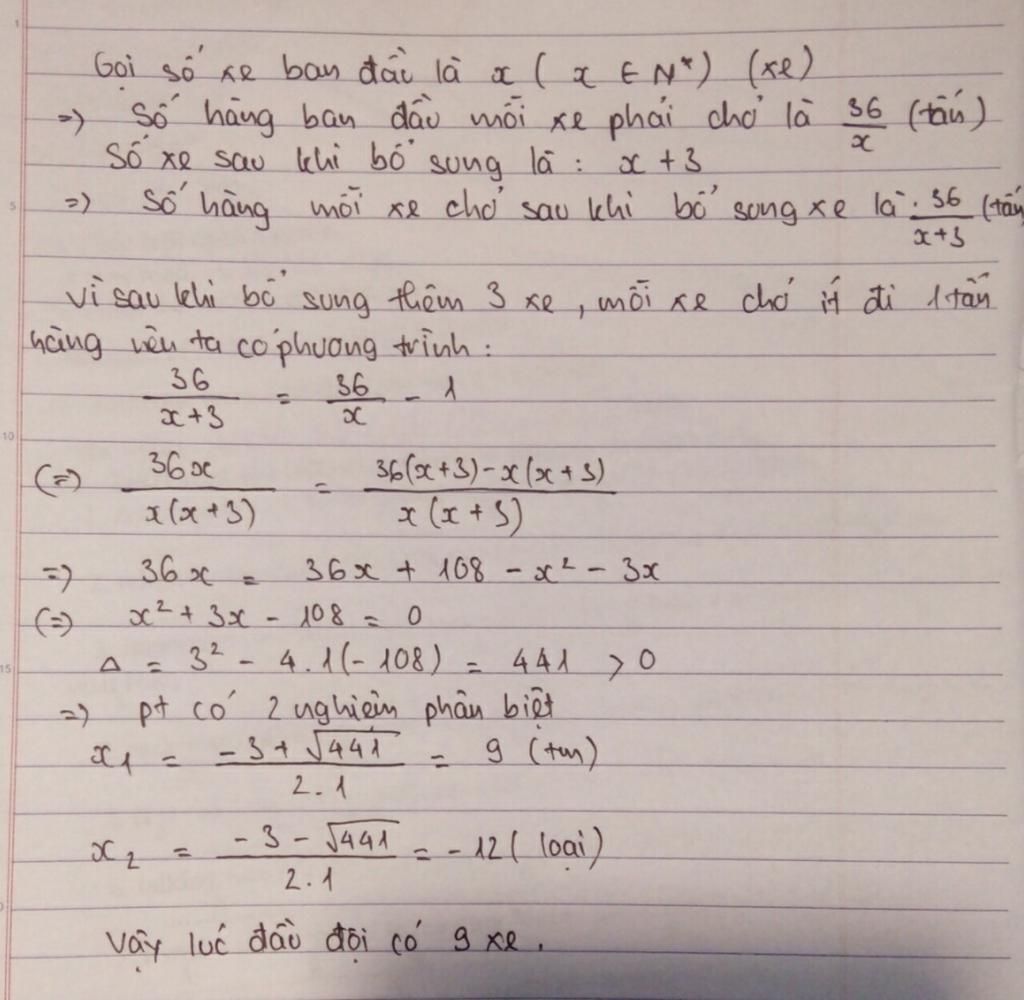 Gọi số xe ban đầu là x ( x ∈ N*) (xe)
=) Số hàng ban đầu mỗi xe phải chở là 36/x (tấn)
Số xe sau khi bổ sung là : x + 3
=) Số hàng mỗi xe chở sau khi bổ sung xe là : 36/(x+3) (tấn
Vì sau khi bổ sung thêm 3 xe , mỗi xe chở ít đi 1 tấn
hàng nên ta có phương trình :
36/(x+3) = 36/x - 1
(=) 36x/(x(x+3)) = (36(x+3)-x(x+3))/(x(x+3))
=) 36x = 36x + 108 - x² - 3x
(=) x² + 3x - 108 = 0
Δ = 3² - 4.1(-108) = 441 > 0
=) pt có 2 nghiệm phân biệt
x₁ = (-3+√441)/(2.1) = 9 (tm)
x₂ = (-3-√441)/(2.1) = -12 ( loại)
Vậy lúc đầu đội có 9 xe .